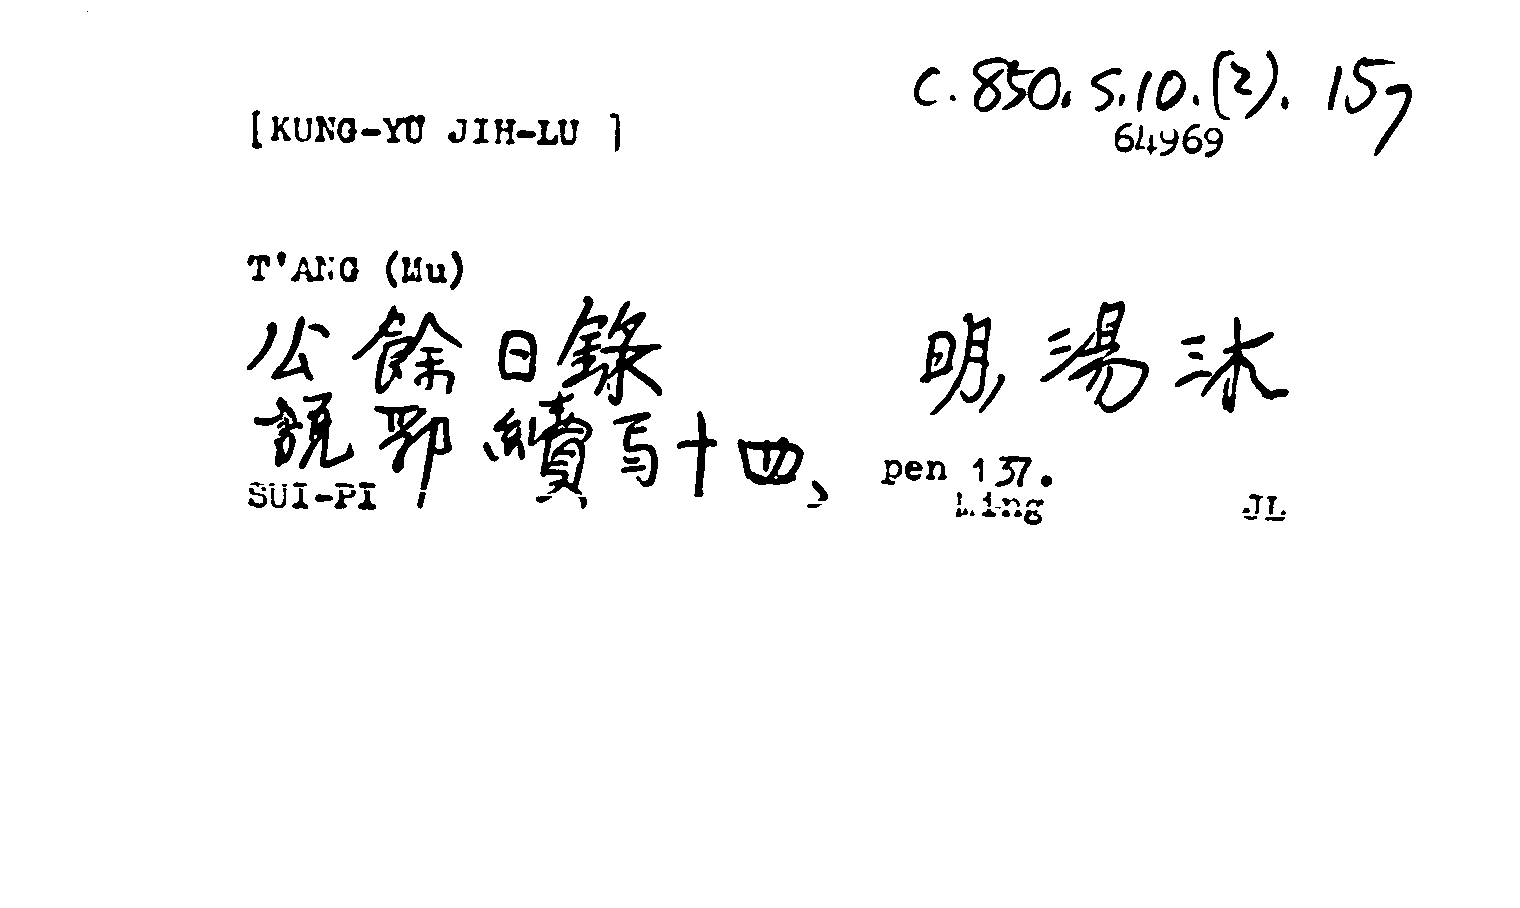 C. 850. S.10.(2). 157
[KUNG-YU JIH-LU ]
64969
T'ANG (Mu)
公餘日錄 明 湯沐
說郛續弓十四、 pen 137.
SUI-PI Ming JL